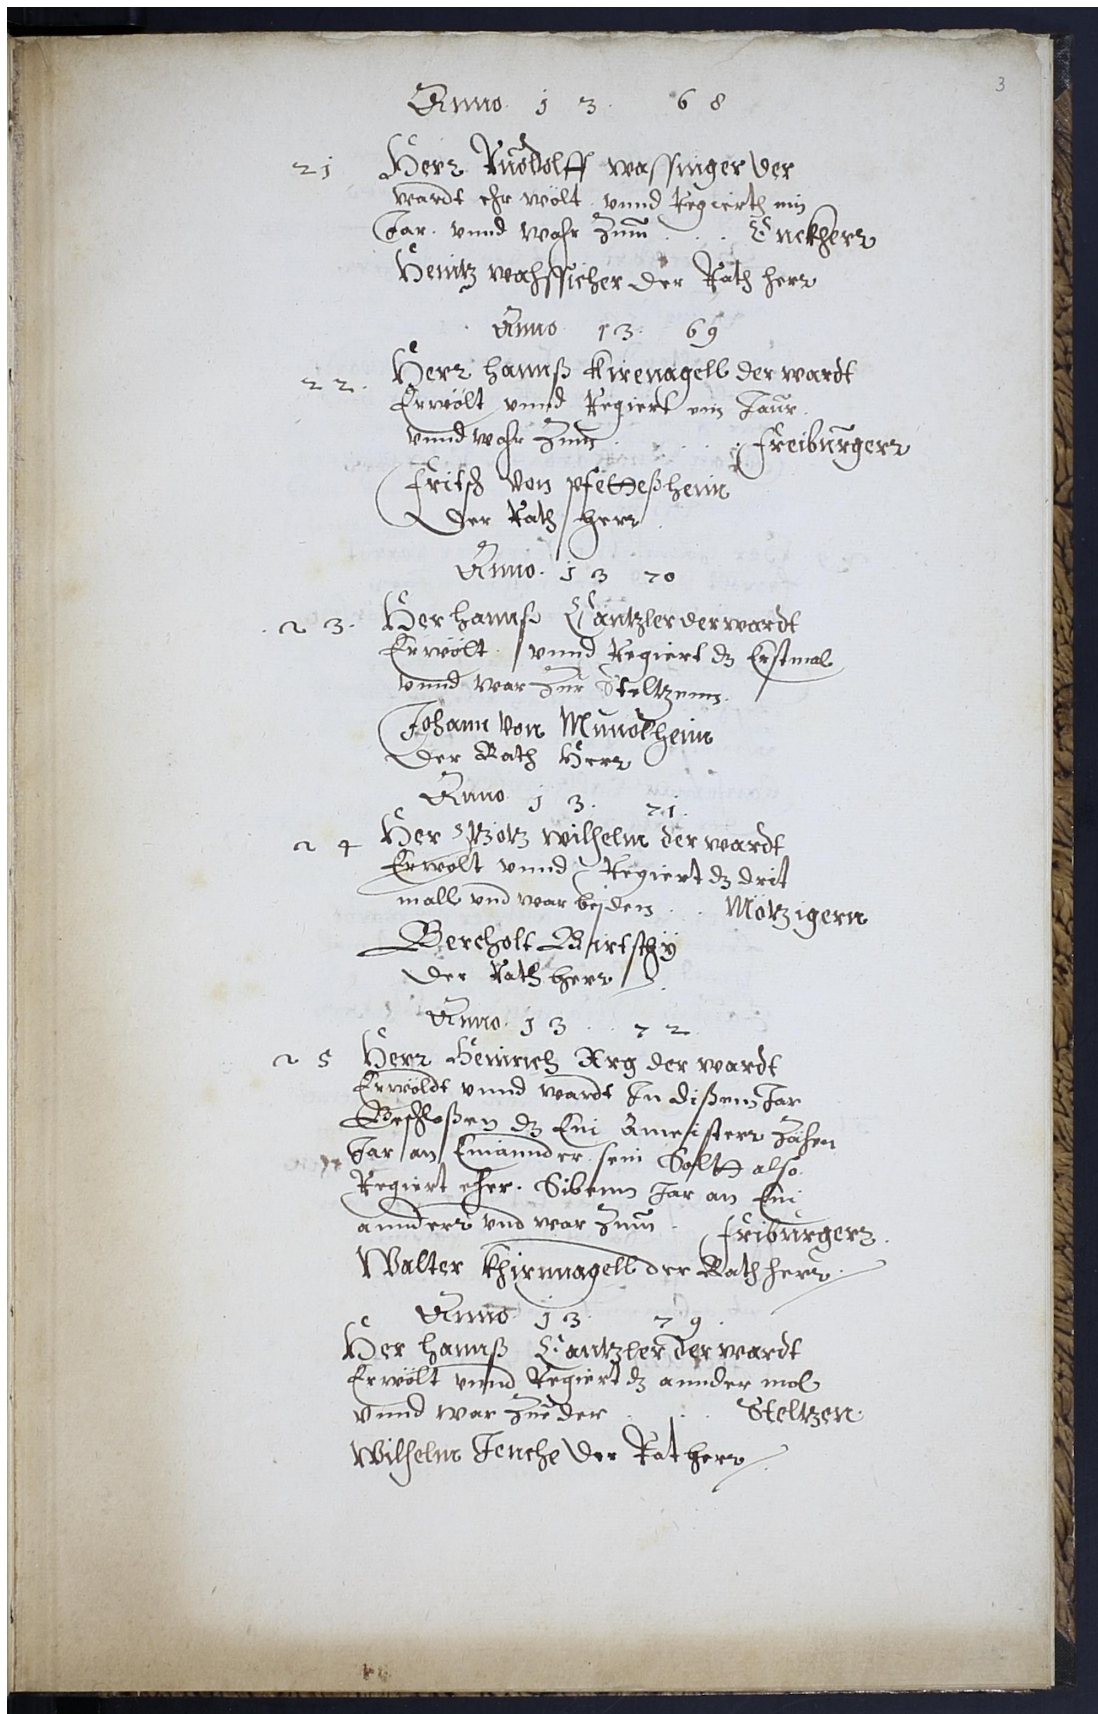 3
Anno 13 68
21 Herr Ruodolff wassinger der
wardt ehr wölt vnnd Regierth ein
Jar. vnnd wahr Zum . . Enckherr
Heintz wahssicher der Rath herr
Anno 13. 69
22. Herr hannß Kirenagell der wardt
Erwölt vnnd Regiert ein Jaur
vnnd wahr Zum . . . freiburgerr
Fritsch von pfetteßheim
Der Rath herr
Anno. 13 70
23. Her hannß Cantzler der wardt
Erwölt vnnd Regiert dz Erstmal
vnnd war Zur Steltzenn.
Johann von Munckheim
Der Rath Herr
Anno 13. 71.
24 Her Götz wilhelm der wardt
Erwolt vnnd Regiert dz drit
mall vnd war bej den . . Mötzigern
Bercholt Birtschy
Der Rath herr
Anno. 13 . . 72
25 Herr Heinrich Arg der wardt
Erwöldt vnnd wardt In dißem Jar
Beschloßen dz Ein Ameisterr Zähen
Jar an Einannder sein Soltt also
Regiert eher. Sibenn Jar an Ein
annderr vnd war Zum . friburgerz.
Walter Khirnnagell der Rath herr.
Anno 13 79.
Her hannß Cantzler der wardt
Erwölt vnnd Regiert dz annder mol
vnnd war Zue der . . Steltzen.
Wilhelm Jenche der Rat herr